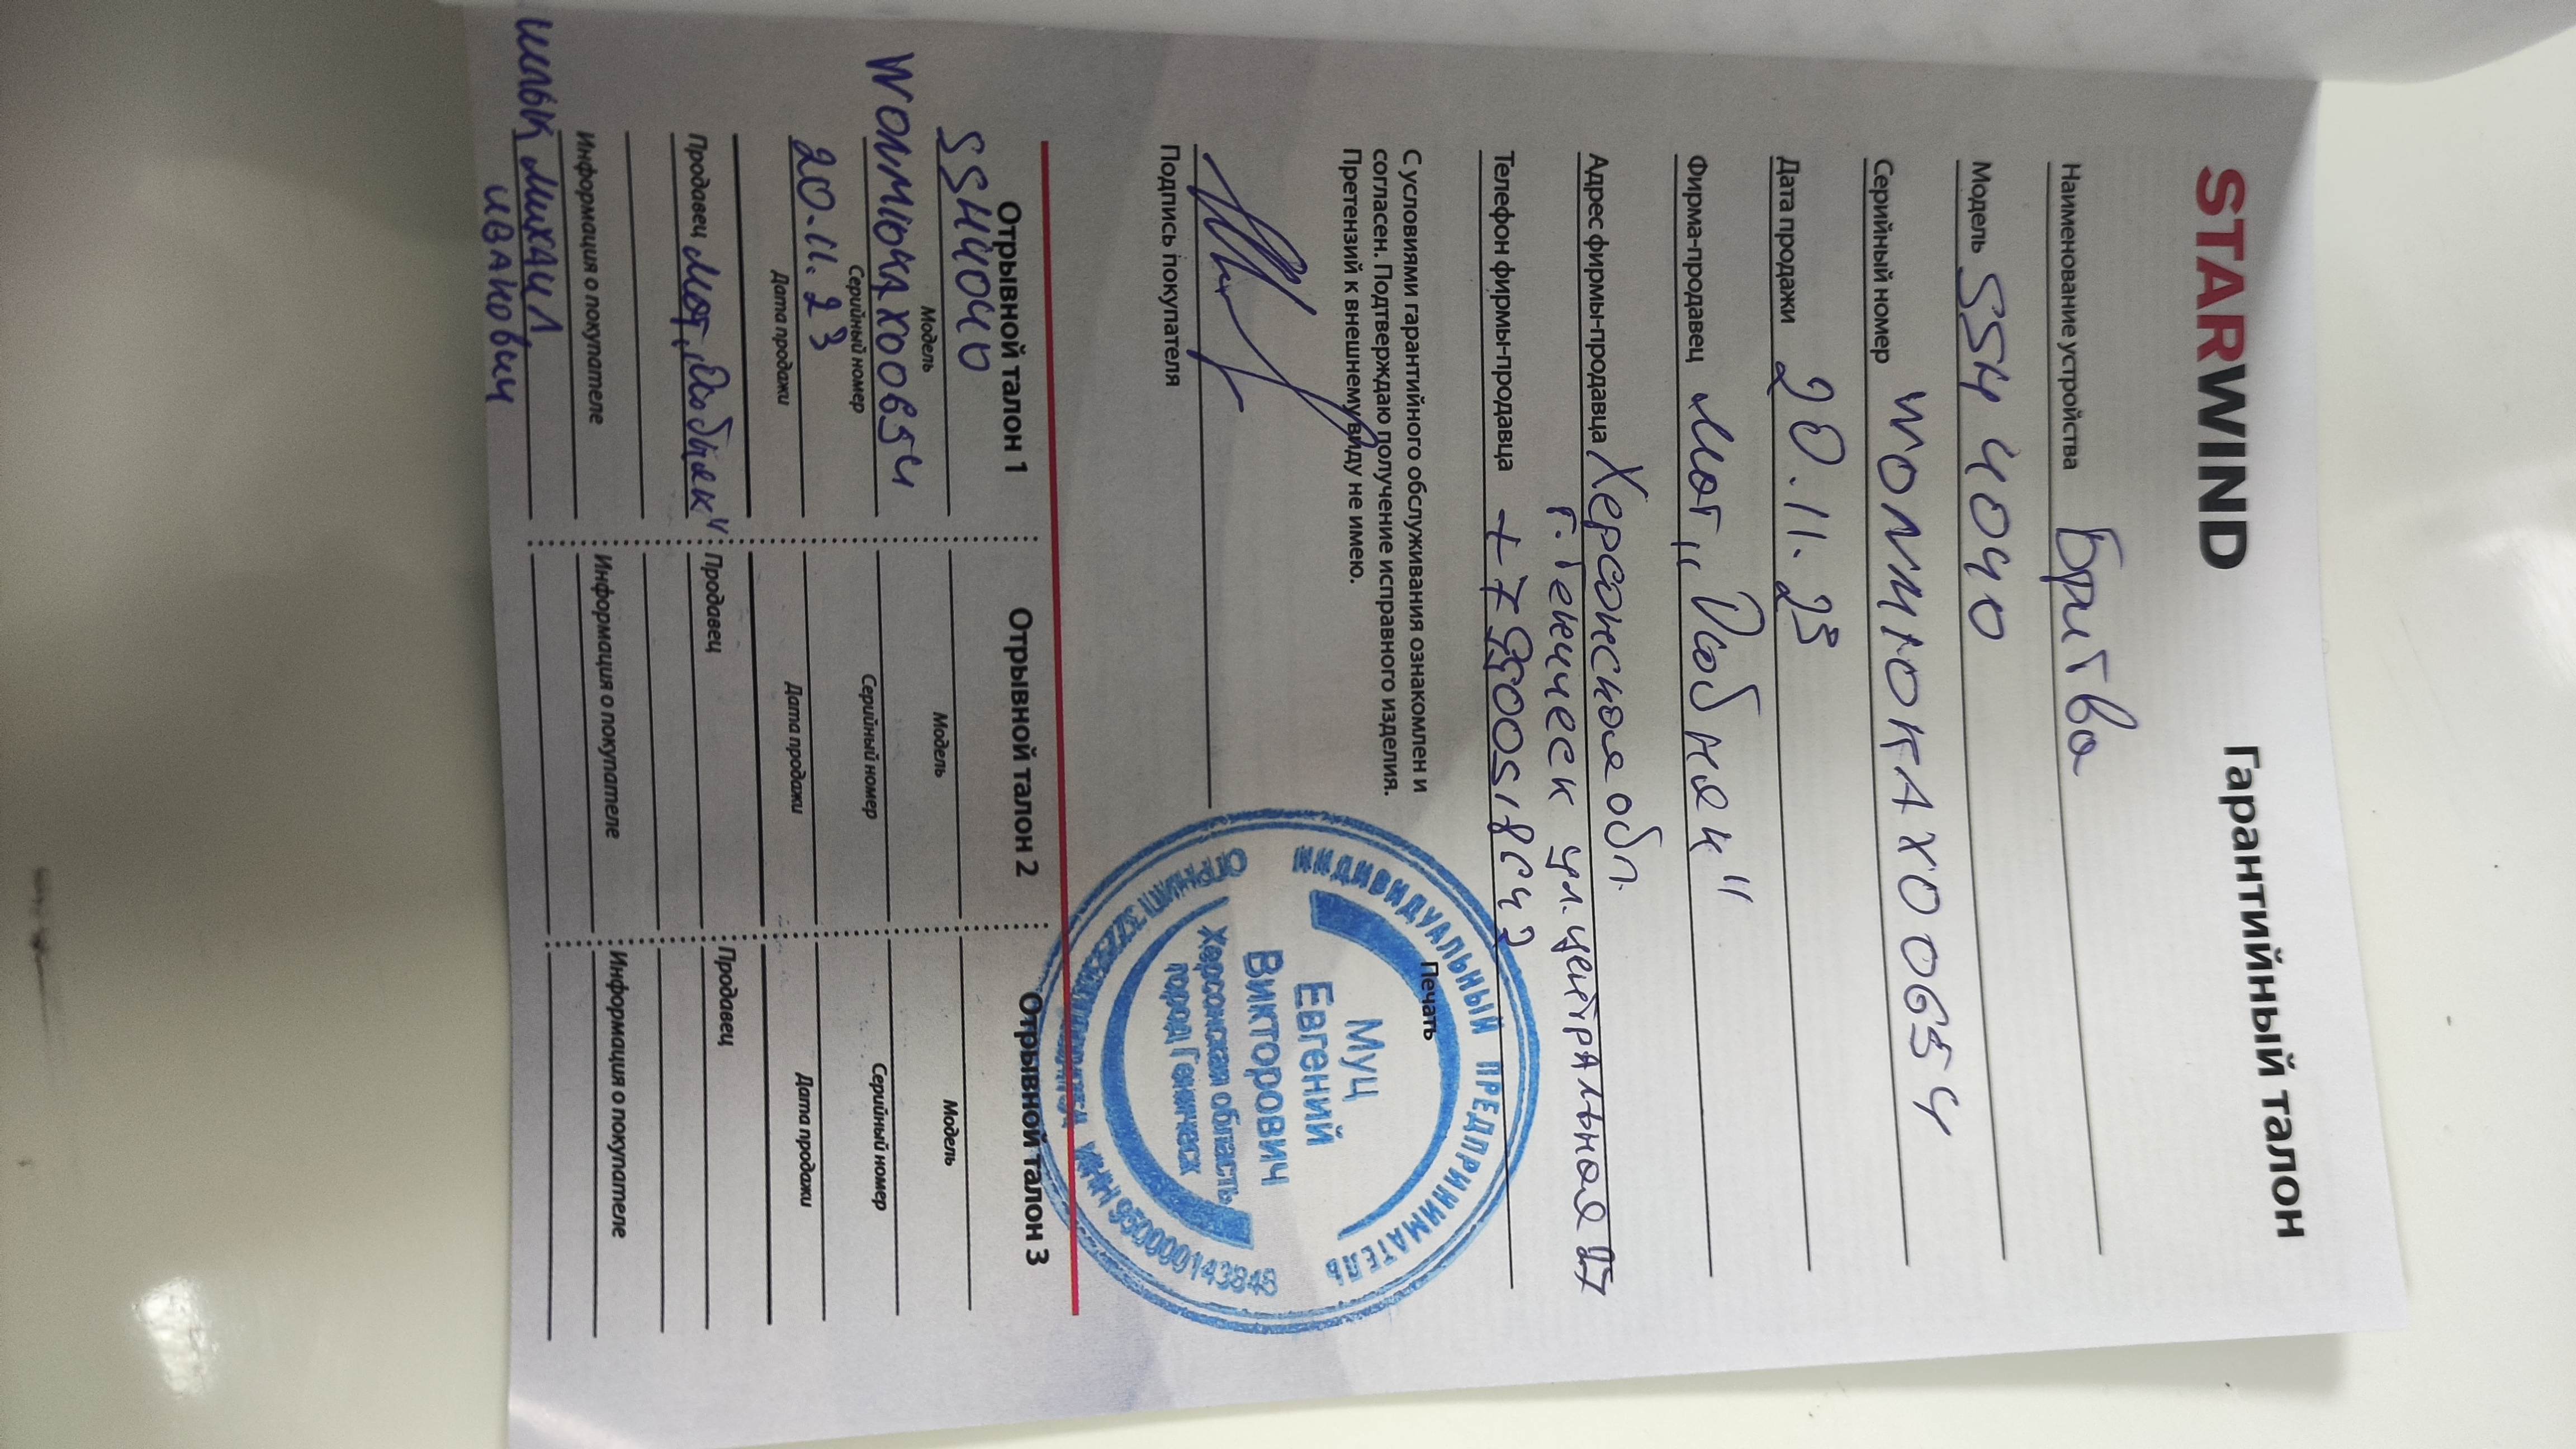 STARWIND Гарантийный талон
Наименование устройства Бритва
Модель SSH 4040
Серийный номер
Дата продажи 20.11.23
Фирма-продавец маг „
Адрес фирмы-продавца Херсонская обл.
г. Геническ ул. Центральная
Телефон фирмы-продавца
С условиями гарантийного обслуживания ознакомлен и
согласен. Подтверждаю получение исправного изделия.
Претензий к внешнему виду не имею.
Печать
Подпись покупателя
ИНДИВИДУАЛЬНЫЙ ПРЕДПРИНИМАТЕЛЬ
Муц
Евгений
Викторович
Херсонская область
город Геническ
ИНН 950000143848
Отрывной талон 1 Отрывной талон 2 Отрывной талон 3
SSH4040
Модель Модель Модель
Серийный номер Серийный номер Серийный номер
20.11.23
Дата продажи Дата продажи Дата продажи
Продавец маг „ Продавец Продавец
Информация о покупателе Информация о покупателе Информация о покупателе
Михаил
Иванович